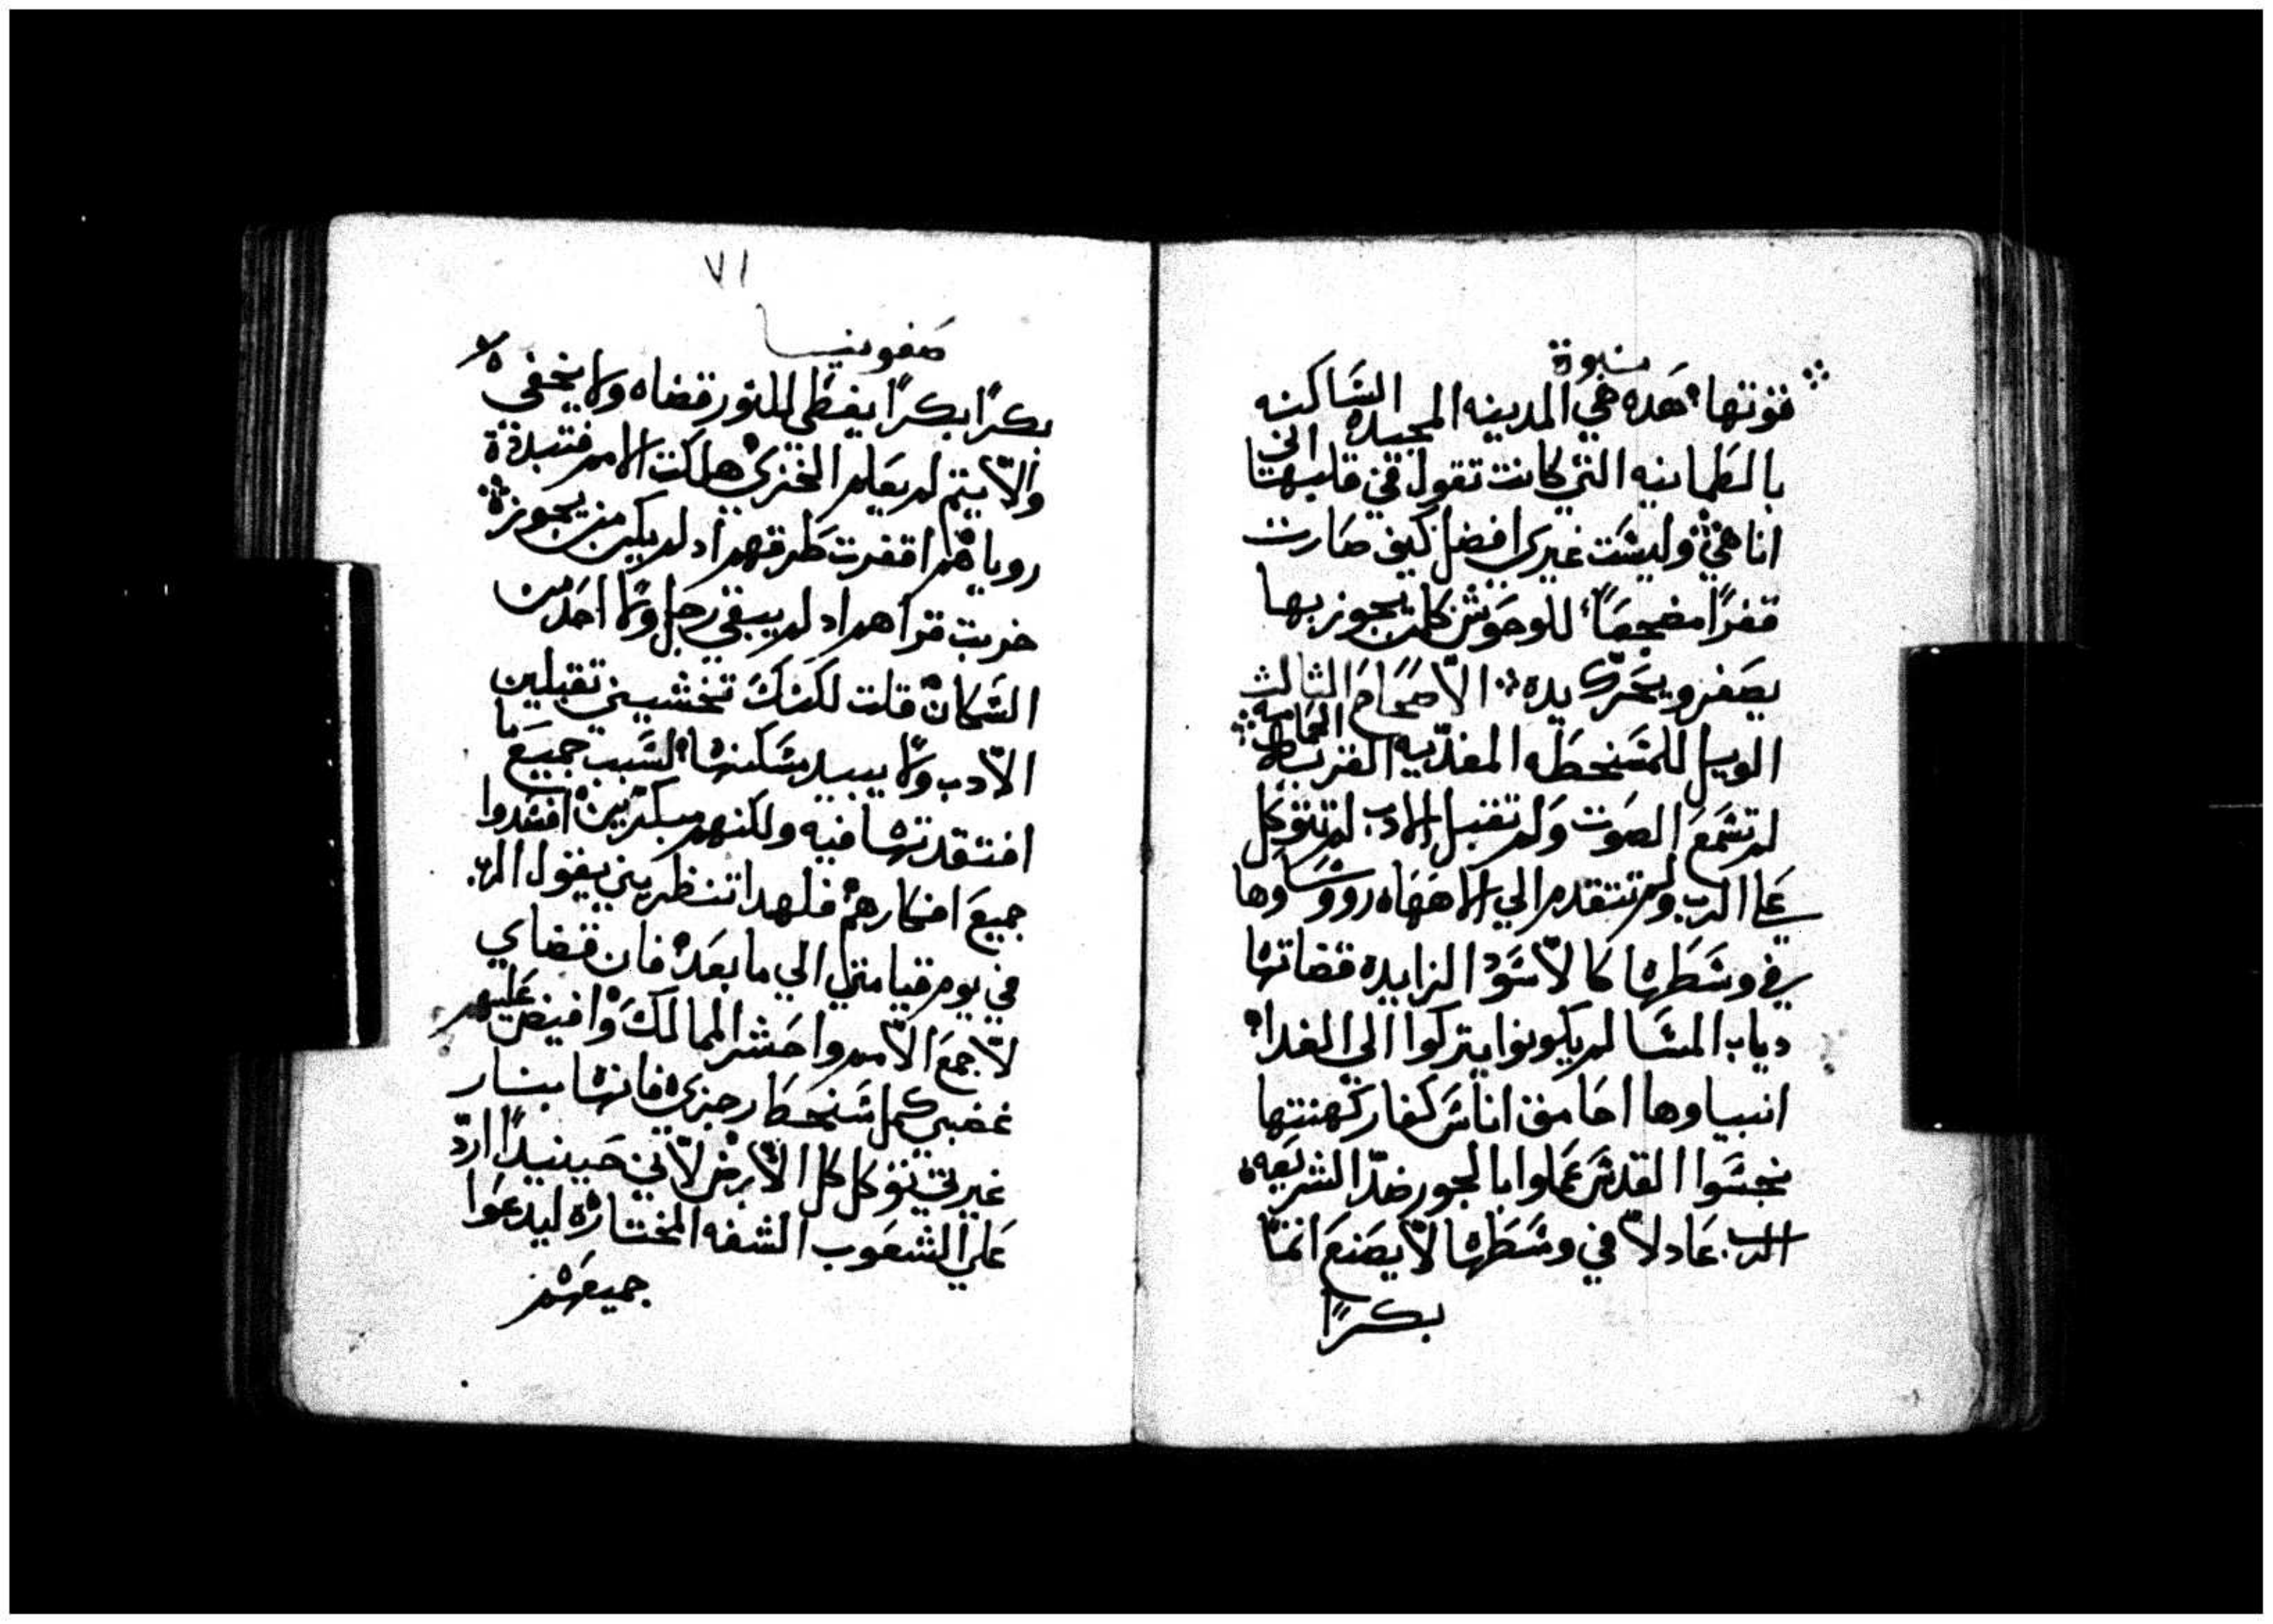 نبوة
قوتها هده هي المدينه المجيده الساكنه
بالطمانيه التي كانت تقول في قلبها اني
انا هي وليست غيري افضل كيف صارت
قفرًا مضجعًا للوحوش كلمن يجوز بها
يصفر ويحرك يده الاصحاح الثالث
الويل للمسخطه المفديه القريه الحمامه
لم تسمع الصوت ولم تقبل الادب لم تتوكل
علي الرب ولم تتقدم الي الاهها رووساوها
في وسطها كالاسود الزايره قضاتها
دياب المسا لم يكونوا يتركوا الي الغدا
انبياوها احامق اناس كفار كهنتها
نجسوا القدس عملوا بالجور ضد الشريعه
الرب عادلاً في وسطها لا يصنع اثمًا
بكرًا
٧١
صفونيا
بكرًا بكرًا يعطي للنور قضاه ولا يخفي
والا يتم لم يعلم الخزي هلكت الامم فتبددة
روياهم اقفرت طرقهم اد لم يكن من يجوز
خربت قراهم اد لم يبقي رجل ولا احد من
السكان قلت لكنك تخشيني تقبلين
الادب ولا يبيد مسكنها لسبب جميع ما
افتقدتها فيه ولكنهم مبكرين افسدوا
جميع افكارهم فلهدا تنظريني يقول الرب
في يوم قيامتي الي ما بعد فان قضاي
لاجمع الامم واحشر الممالك وافيض عليهم
غضبي كل سخط رجزي فانها بنار
غيرتي توكل كل الارض لاني حينيدًا اردّ
علي الشعوب الشفه المختاره ليدعوا
جميعهم